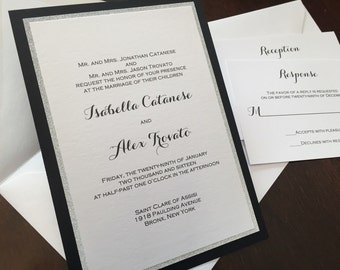 Mr. and Mrs. Jonathan Catanese
and
Mr. and Mrs. Jason Trovato
request the honor of your presence
at the marriage of their children
Isabella Catanese
and
Alex Trovato
Friday, the twenty-ninth of January
two thousand and sixteen
at half-past one o'clock in the afternoon
Saint Clare of Assisi
1918 Paulding Avenue
Bronx, New York
Reception
Response
The favor of a reply is requested
on or before twenty-ninth of December
M
accepts with
declines with